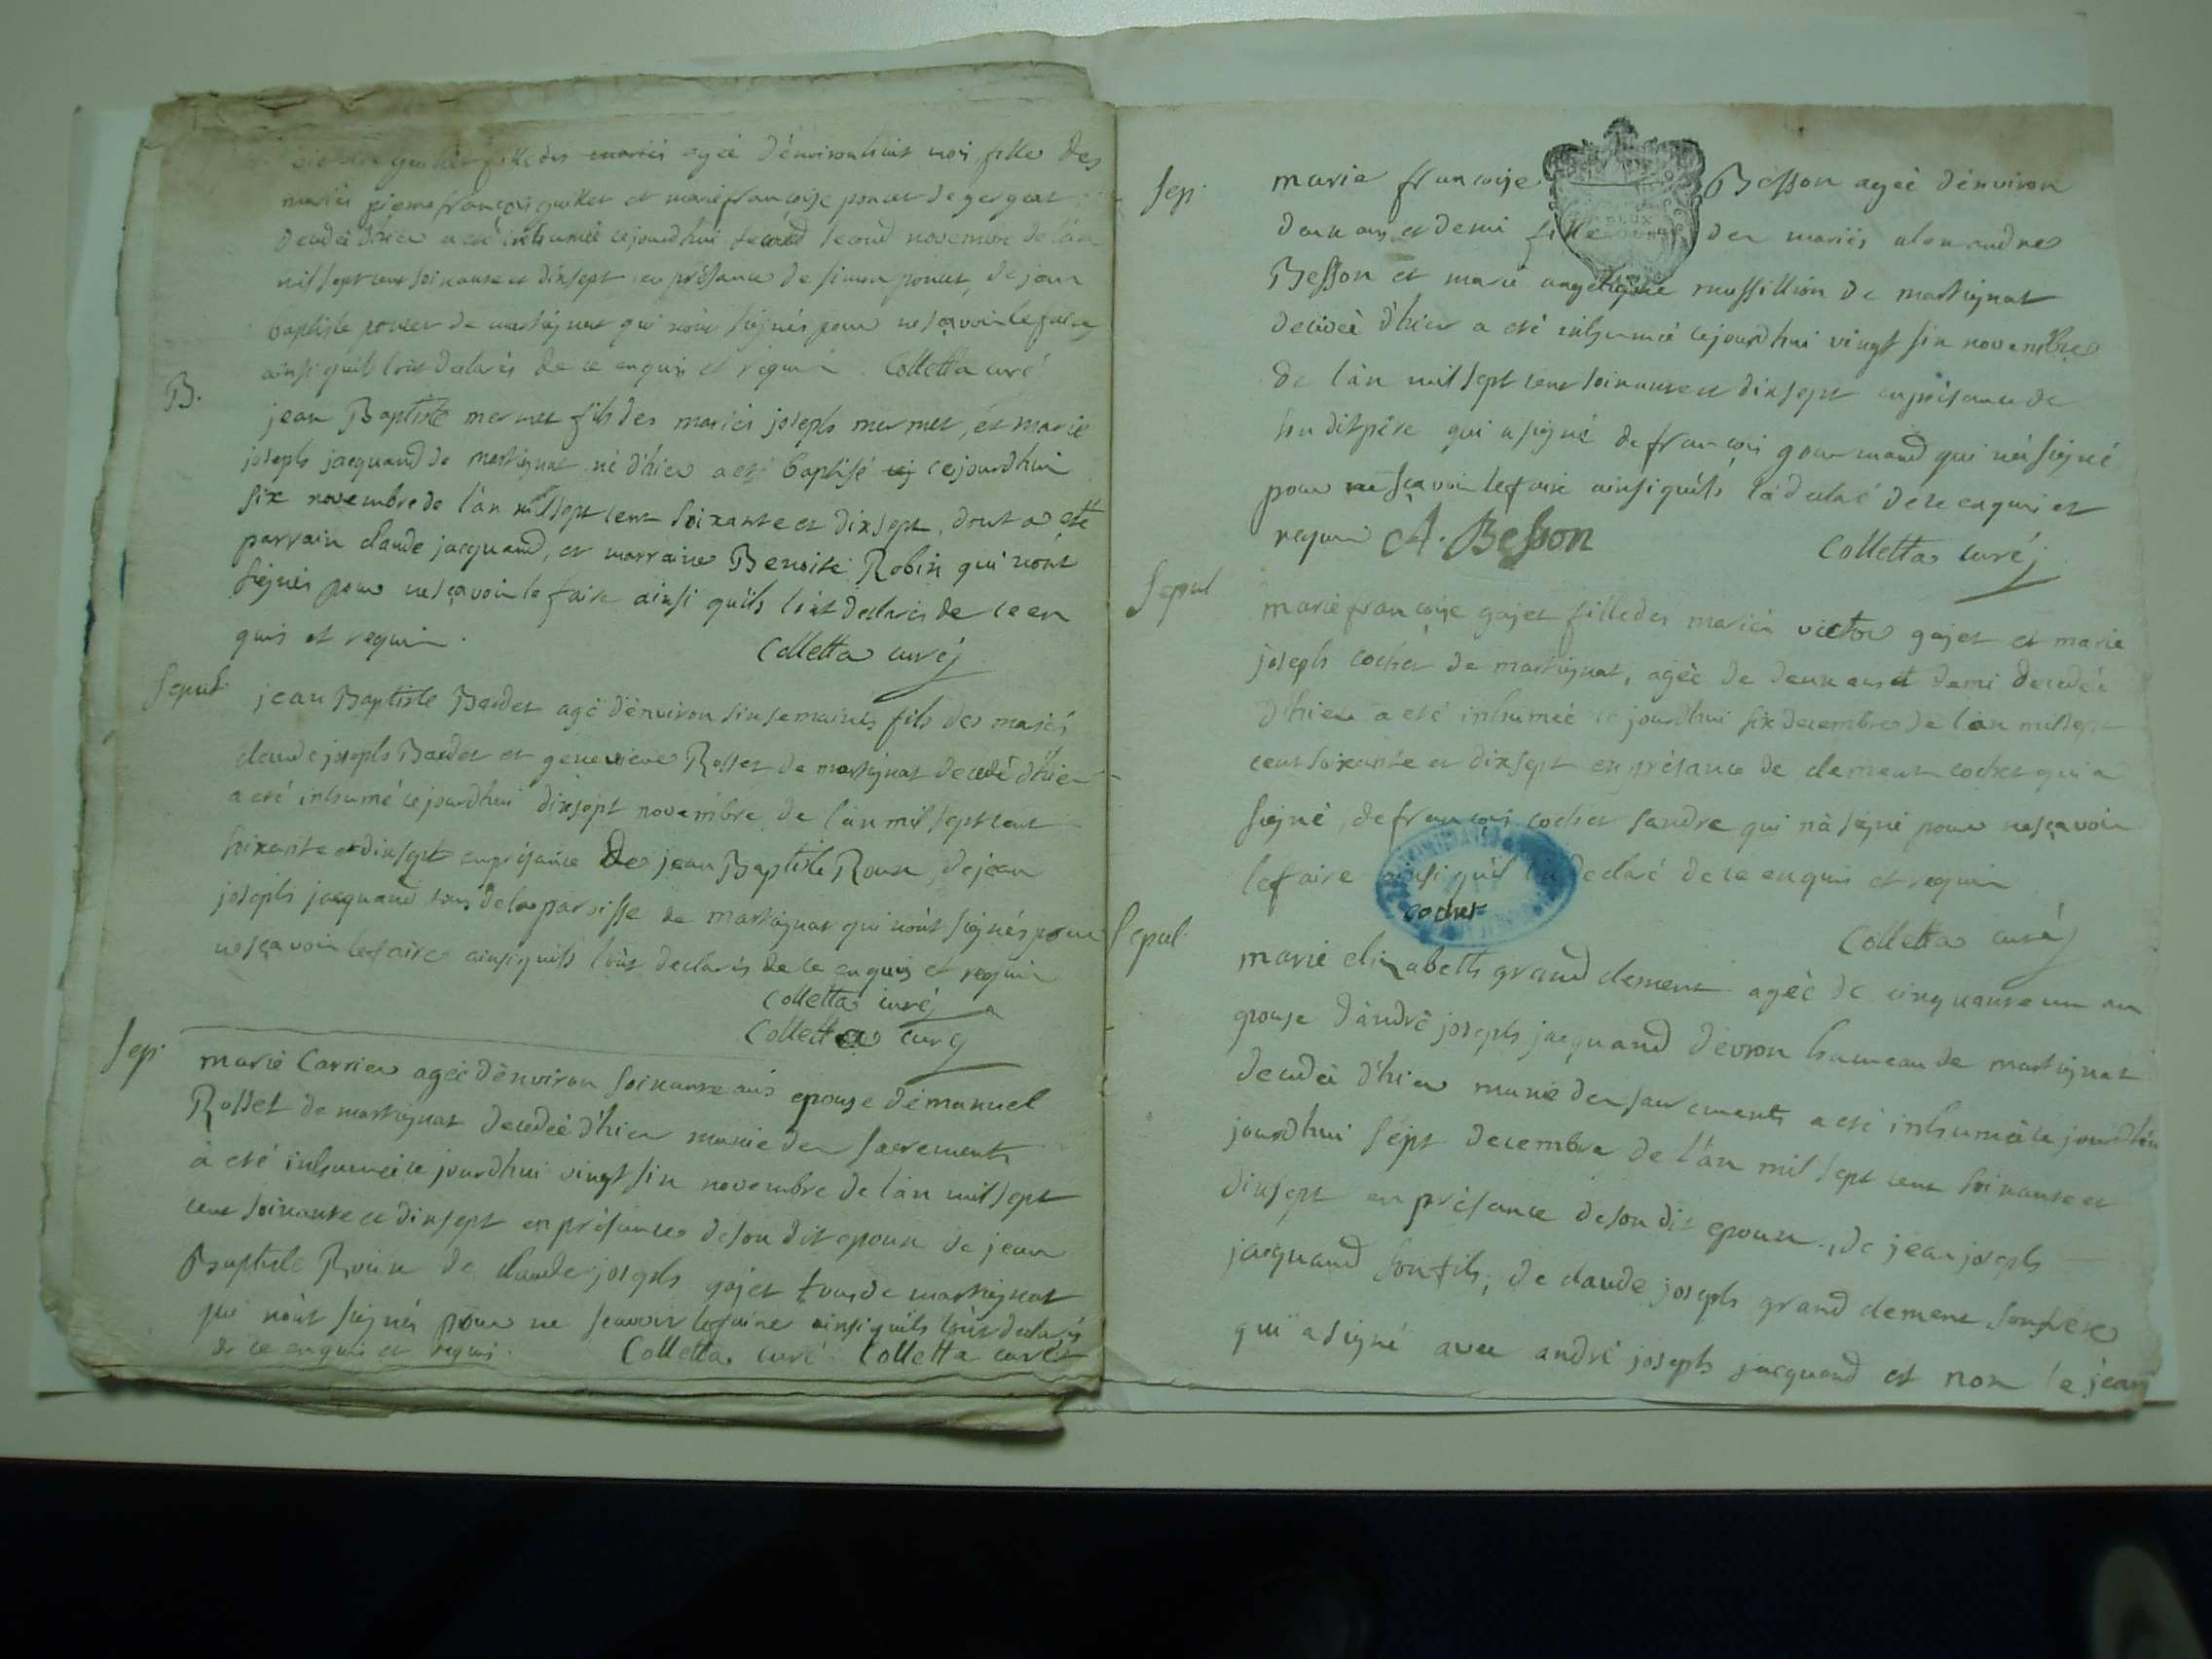 guillet fille des mariés agée d'environ huit mois fille des
mariés pierre françois guillet et marie françoise poncet de gergeat
decedée d'hier a eté inhumée cejourd'hui second novembre de l'an
mil sept cent soixante et dixsept en présance de simon poncet, de jean
baptiste poncet de martignat qui n'ont signés pour ne sçavoir le faire
ainsi qu'ils l'ont declarés de ce enquis et requis. Colletta curé
B.
jean Baptiste mermet fils des mariés joseph mermet, et marie
joseph jacquand de martignat né d'hier a eté baptisé cejourd'hui
six novembre de l'an mil sept cent soixante et dixsept, dont a eté
parrain claude jacquand, et marraine Benoite Robin qui n'ont
signés pour ne sçavoir le faire ainsi qu'ils l'ont declarés de ce en
quis et requis.
Colletta curé
Sepult.
jean Baptiste Bardet agé d'environ six semaines fils des mariés
claude joseph Bardet et genevieve Rosset de martignat decedé d'hier
a eté inhumé cejourd'hui dixsept novembre de l'an mil sept cent
soixante et dixsept en présance de jean Baptiste Roux, de jean
joseph jacquand tous de la paroisse de martignat qui n'ont signés pour
ne sçavoir le faire ainsi qu'ils l'ont declarés de ce enquis et requis
Colletta curé
Colletta curé
Sep.
marie Carrier agée d'environ soixante ans epouse d'emanuel
Rosset de martignat decedée d'hier munie des sacrements
a eté inhumée ce jourd'hui vingt six novembre de l'an mil sept
cent soixante et dixsept en présance de son dit epoux de jean
Baptiste Roux de claude joseph gojet tous de martignat
qui n'ont signés pour ne scavoir le faire ainsi qu'ils l'ont declarés
de ce enquis et requis. Colletta curé. Colletta curé
Sep.
marie françoise Besson agée d'environ
deux ans et demi fille des mariés alexandre
Besson et marie angelique mussillion de martignat
decedée d'hier a eté inhumée cejourd'hui vingt six novembre
de l'an mil sept cent soixante et dixsept en présance de
son dit père qui a signé de françois gourmand qui n'a signé
pour ne sçavoir le faire ainsi qu'il l'a declaré de ce enquis et
requis A. Besson
Colletta curé
Sepul
marie françoise gojet fille des mariés victor gojet et marie
joseph cochet de martignat, agée de deux ans et demi decedée
d'hier a eté inhumée ce jourd'hui six decembre de l'an mil sept
cent soixante et dixsept en présance de clement cochet qui a
signé, de françois cochet sandre qui n'a signé pour ne sçavoir
le faire ainsi qu'il l'a declaré de ce enquis et requis
cochet
Colletta curé
Sepul.
marie elizabeth grand clement agée de cinquante un an
epouse d'andré joseph jacquand d'evron hameau de martignat
decedée d'hier munie des sacrements a eté inhumée ce jourd'hui
jourd'hui sept decembre de l'an mil sept cent soixante et
dixsept en présance de son dit epoux, de jean joseph
jacquand son fils, de claude joseph grand clement son frère
qui a signé avec andré joseph jacquand et non le jean